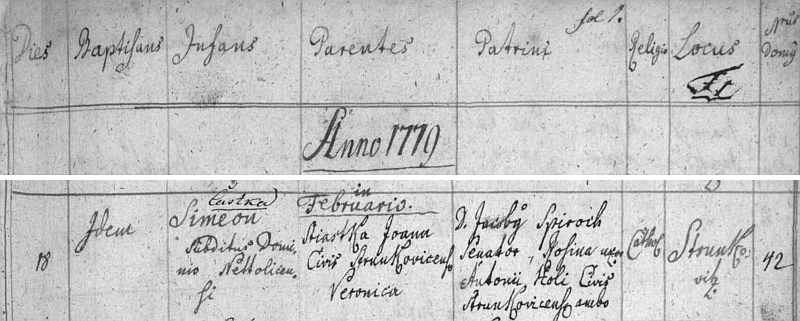 fol 1.
Dies Baptisans Infans Parentes Patrini Religio Locus Nrus Domus
Anno 1779
in
Februario.
18
Idem
Simeon
Subditus Domi
nio Nettolicen
si
Joann
Civis Strunkovicens
Veronica
D. Jacobg Spiroch
Senator, Rosina uxor
Antonii Holi Civis
Strunkovicens ambo
Cathol
Strunko
vitz
42